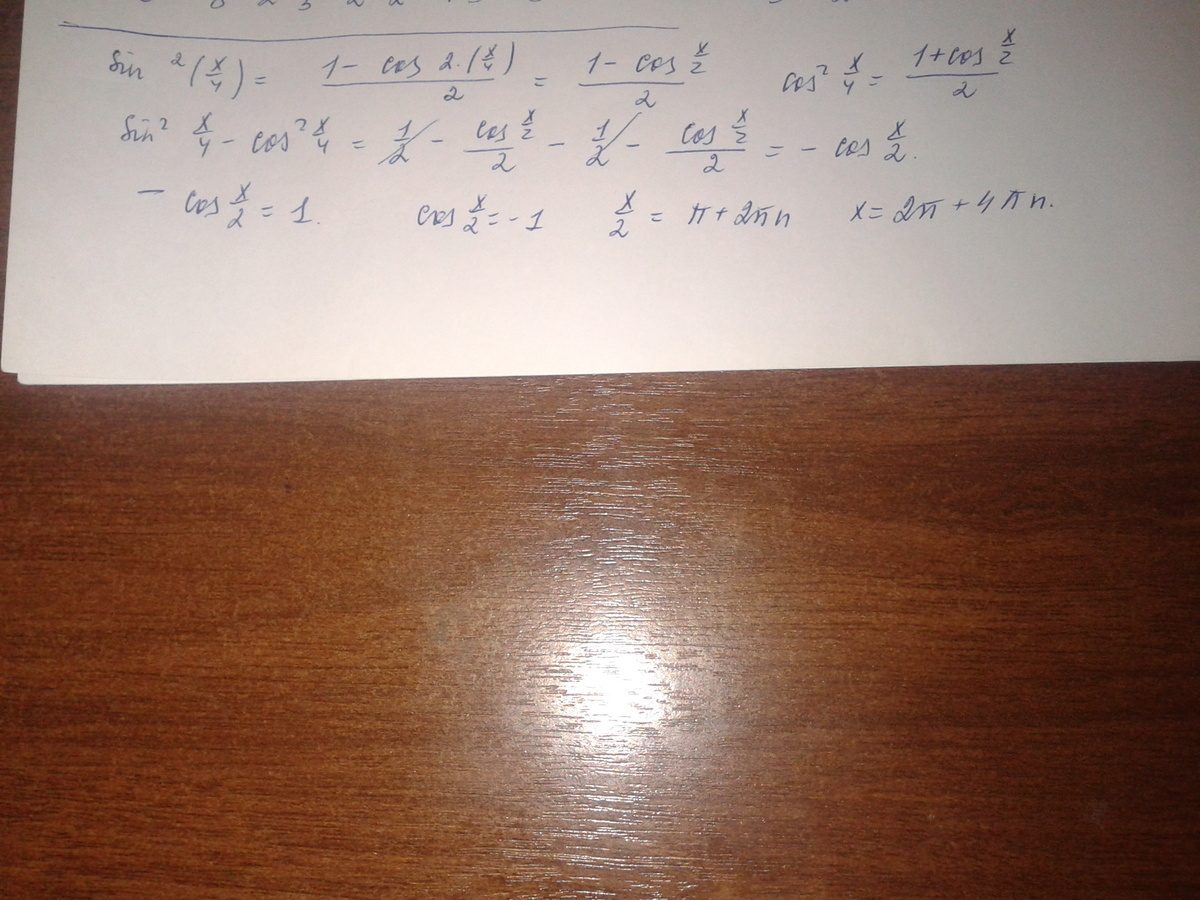 sin²(x/4) = (1 - cos 2·(x/4))/2 = (1 - cos x/2)/2 cos² x/4 = (1 + cos x/2)/2
sin² x/4 - cos² x/4 = 1/2 - (cos x/2)/2 - 1/2 - (cos x/2)/2 = - cos x/2.
- cos x/2 = 1. cos x/2 = -1 x/2 = π + 2πn x = 2π + 4πn.